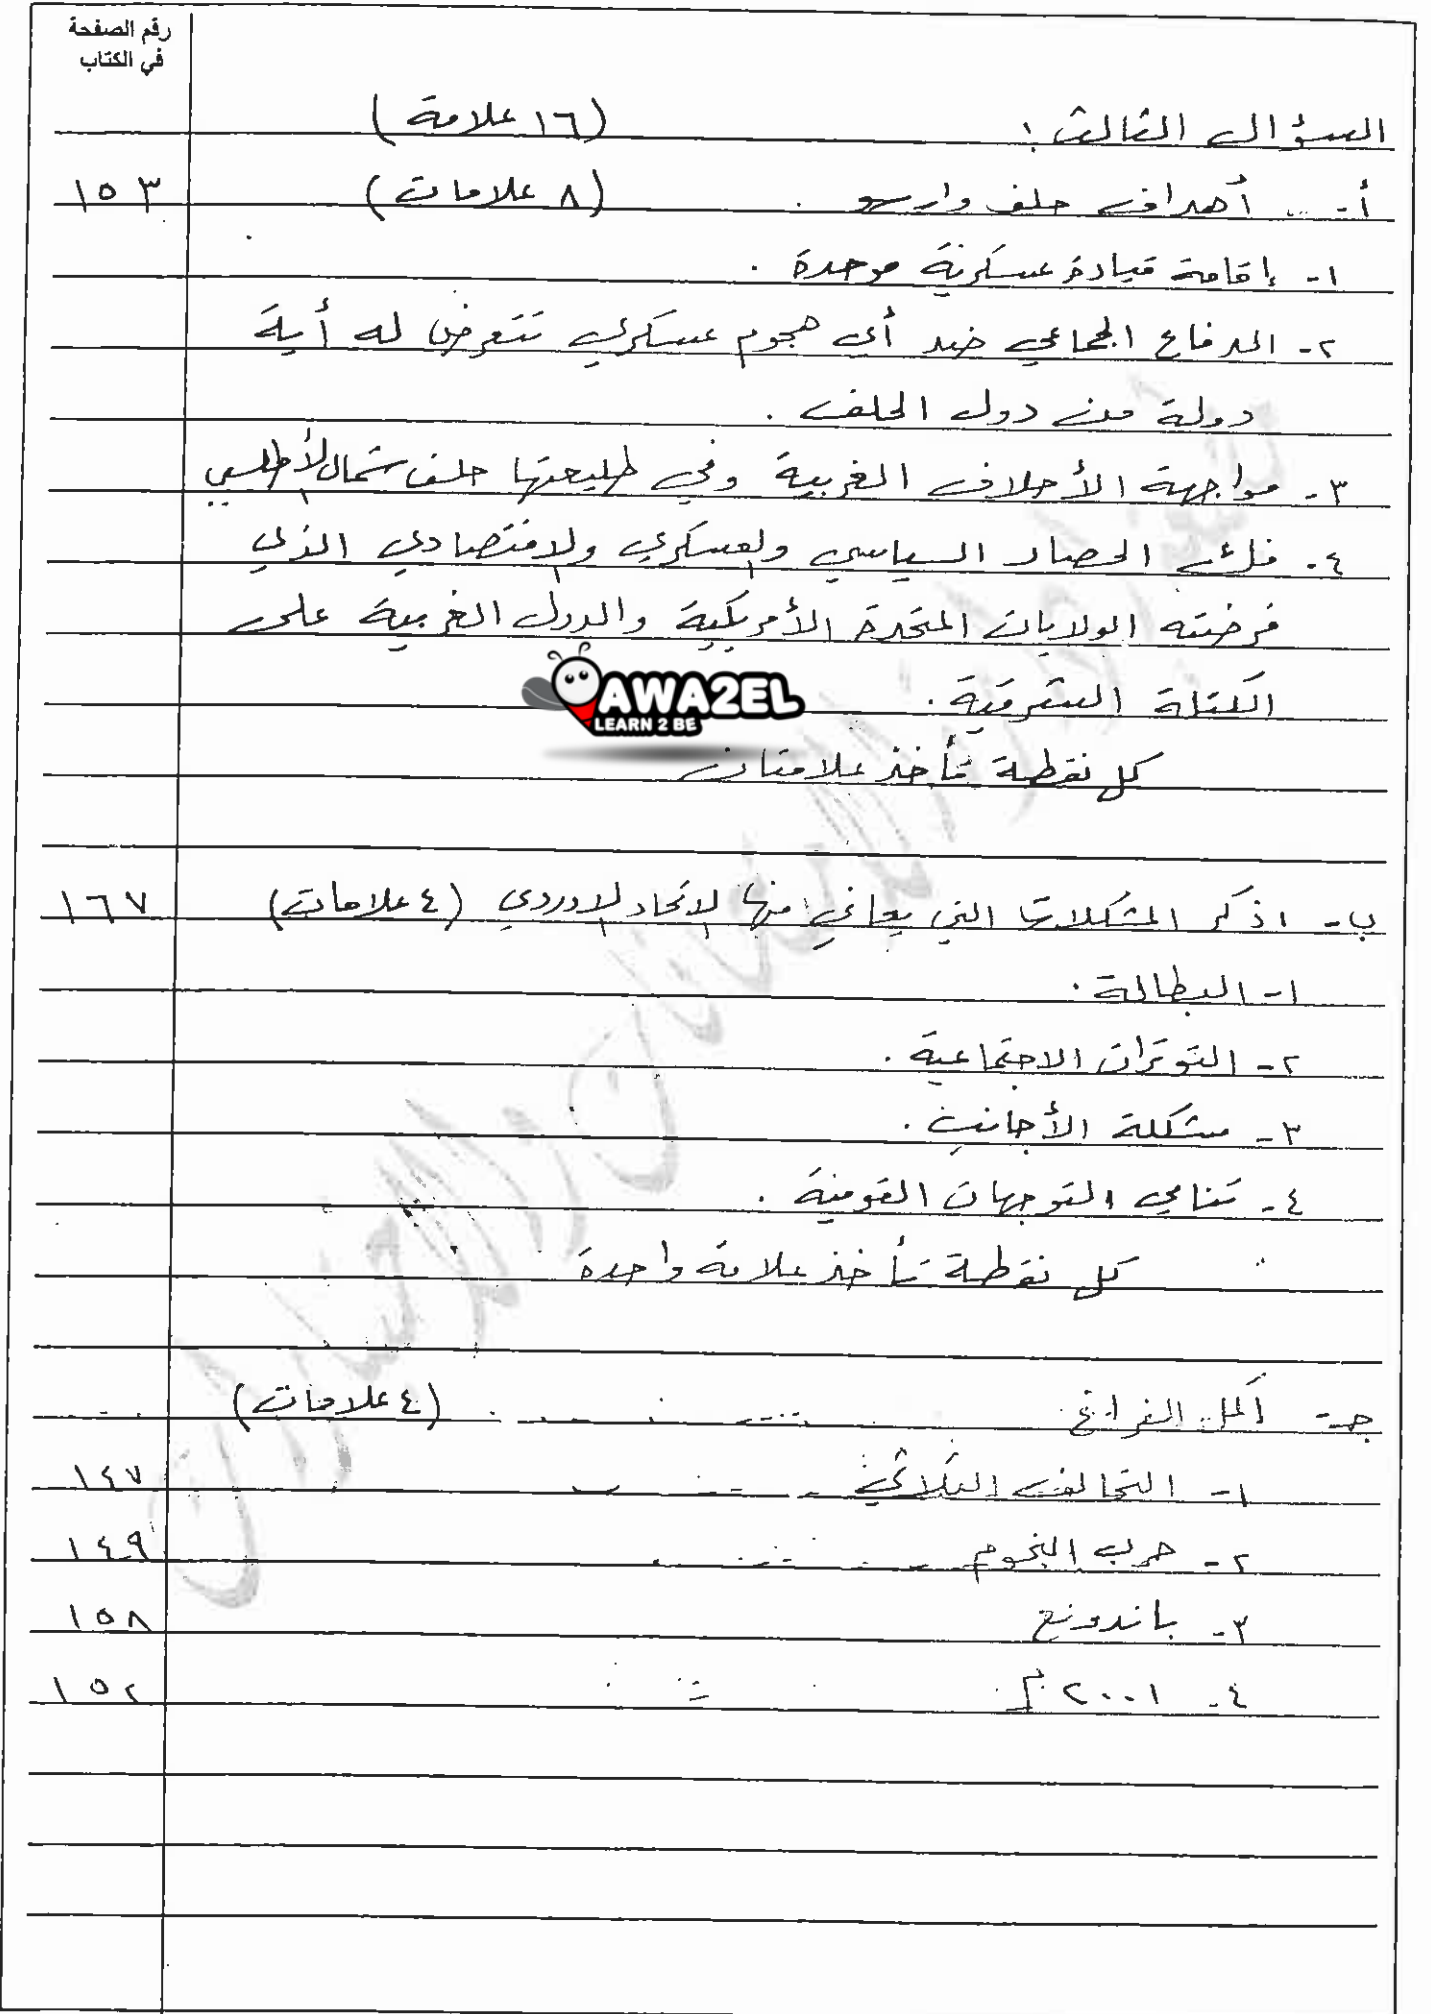 رقم الصفحة
في الكتاب
السؤال الثالث : (١٦ علامة)
أ- أهداف حلف وارسو . (٨ علامات) ١٥٣
١- إقامة قيادة عسكرية موحدة .
٢- الدفاع الجماعي ضد أي هجوم عسكري تتعرض له أية
دولة من دول الحلف .
٣- مواجهة الأحلاف الغربية وفي طليعتها حلف شمال الأطلسي
٤- فك الحصار السياسي والعسكري والاقتصادي الذي
فرضته الولايات المتحدة الأمريكية والدول الغربية على
الكتلة الشرقية .
AWA2EL
LEARN 2 BE
كل نقطة تأخذ علامتان
ب- اذكر المشكلات التي يعاني منها الاتحاد الاوروبي (٤ علامات) ١٦٧
١- البطالة .
٢- التوترات الاجتماعية .
٣- مشكلة الأجانب .
٤- تنامي التوجهات القومية .
كل نقطة تأخذ علامة واحدة
جـ- أكمل الفراغ (٤ علامات)
١- التحالف الثلاثي ١٤٧
٢- حرب النجوم ١٤٩
٣- باندونغ ١٥٨
٤- ٢٠٠١ م ١٥٢